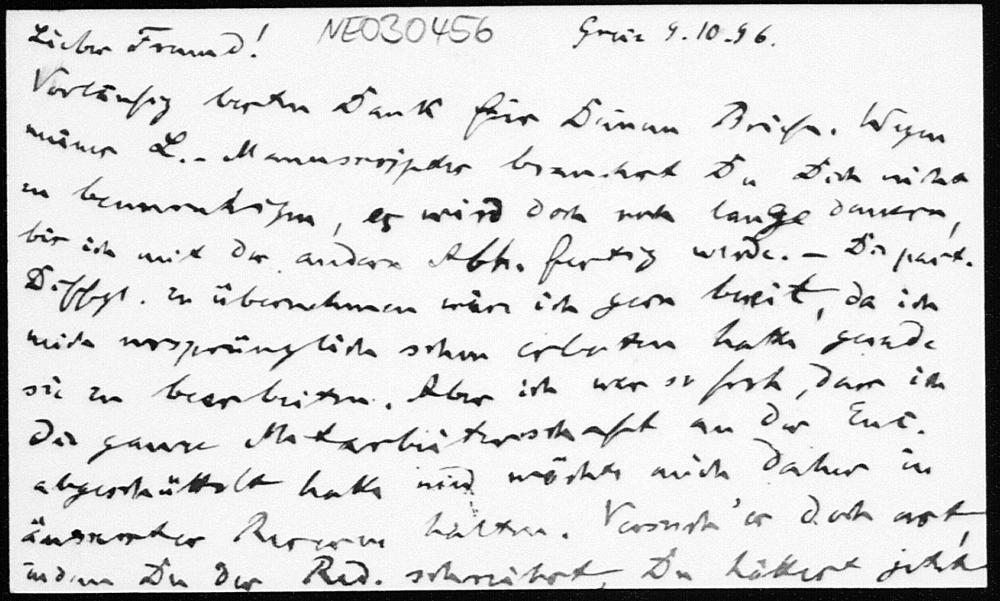 Lieber Freund! NE030456 Graz 9.10.96.
Vorläufig besten Dank für Deinen Brief. Wegen
meiner L.-Manuscripte brauchst Du Dich nicht
zu beunruhigen, es wird doch noch lange dauern,
bis ich mit der andern Abh. fertig werde. – Die part.
Diffgl. zu übernehmen wäre ich gern bereit, da ich
mich ursprünglich schon erboten hatte gerade
sie zu bearbeiten. Aber ich war so froh, dass ich
die ganze Mitarbeiterschaft an der Enc.
abgeschüttelt hatte und möchte mich daher in
äusserster Reserve halten. Versuch' es doch erst,
indem Du der Red. schreibst, Du hättest jetzt